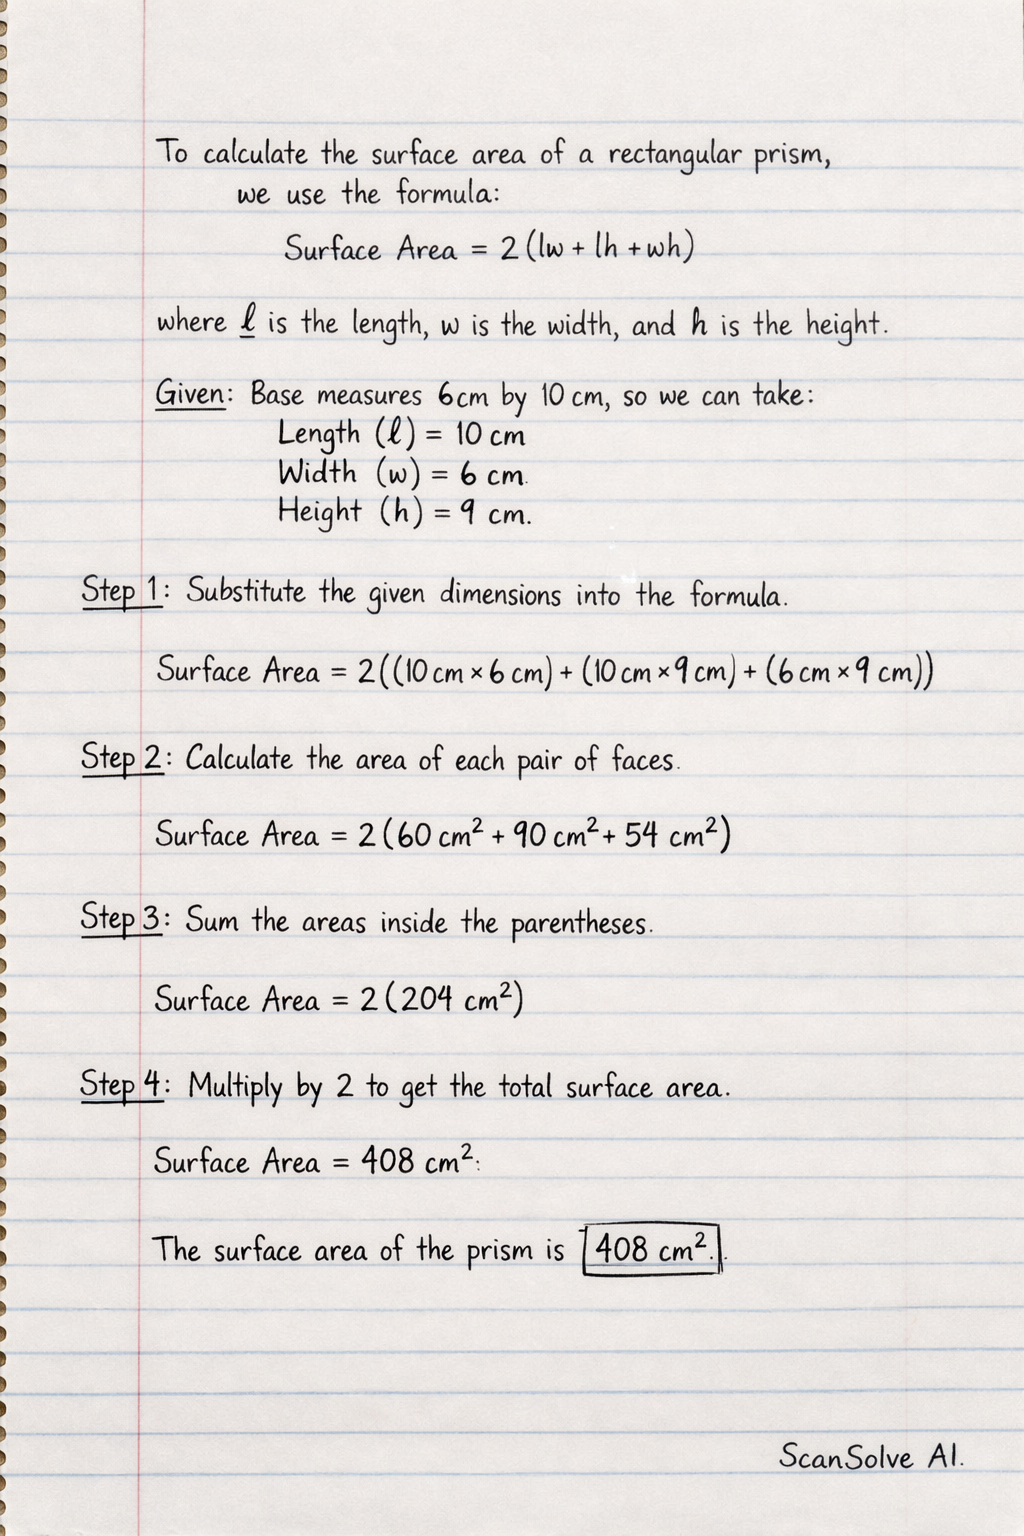 To calculate the surface area of a rectangular prism,
we use the formula:
Surface Area = 2 (lw + lh + wh)
where l is the length, w is the width, and h is the height.
Given: Base measures 6cm by 10 cm, so we can take:
Length (l) = 10 cm
Width (w) = 6 cm.
Height (h) = 9 cm.
Step 1: Substitute the given dimensions into the formula.
Surface Area = 2((10 cm × 6 cm) + (10 cm × 9 cm) + (6 cm × 9 cm))
Step 2: Calculate the area of each pair of faces.
Surface Area = 2 (60 cm² + 90 cm² + 54 cm²)
Step 3: Sum the areas inside the parentheses.
Surface Area = 2 (204 cm²)
Step 4: Multiply by 2 to get the total surface area.
Surface Area = 408 cm².
The surface area of the prism is 408 cm².
ScanSolve AI.